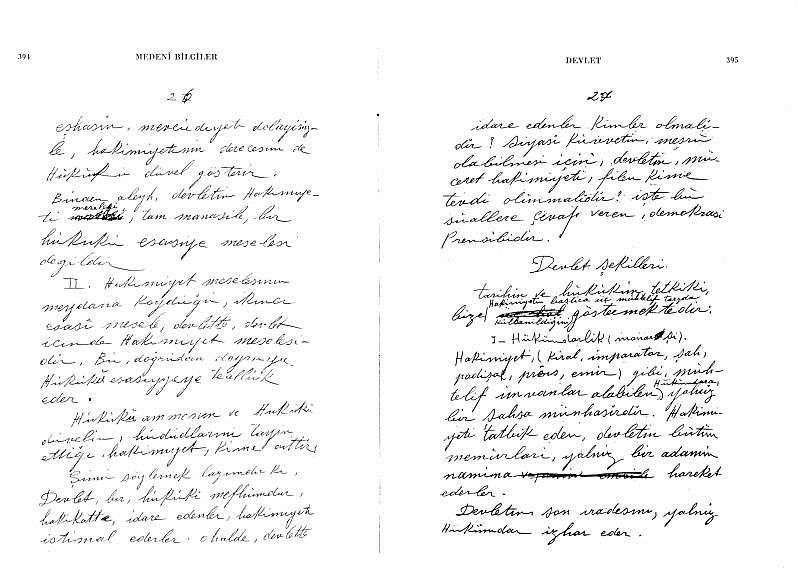 394
MEDENİ BİLGİLER
26
eşhasın, mevcudiyeti dolayisiy-
le, hakimiyetinin derecesini de
Hükuku düvel gösterir.
Binaen aleyh, devletin Hakimiye-
ti meselesi, tam manasile, bir
hükuku esasiye meselesi
degildir
II. Hakimiyet meselesinin
meydana koyduğu, ikinci
esasi mesele, devlette, devlet
icinde Hakimiyet meselesi-
dir. Bu, doğrudan doğruya
Hükuku esasiyyeye tealluk
eder.
Hukuku ammenin ve Hukuku
düvelin, hududlarını tayin
ettiği hakimiyet, kime aittir,
Şunu söylemek lazımdır ki,
Devlet, bir, hükuki mefhumdur,
hakikatte, idare edenler, hakimiyeti
istimal ederler. O halde, devlette
DEVLET
395
27
idare edenler kimler olmali-
dir? Siyasi kuvvetin, meşru
olabilmesi icin, devletin, mü-
cerret hakimiyeti, filen kime
tevdi olunmalidir? işte bu
suallere cevap veren, demokrasi
Prensibidir.
Devlet şekilleri.
tarihin ve hukukun tetkiki,
bize, Hakimiyetin başlıca üç muhtelif tarzda
kullanıldığını göstermektedir.
I - Hükümdarlik (monarşi).
Hakimiyet, (kiral, imparator, şah,
padişah, prens, emir) gibi, muh-
telif unvanlar alabilen Hükümdara, yalnız
bir şahsa münhasirdir. Hakimi-
yeti tatbik eden, devletin bütün
memurlari, yalnız bir adamin
namina hareket
ederler.
Devletin son iradesini, yalnız
Hükümdar izhar eder.